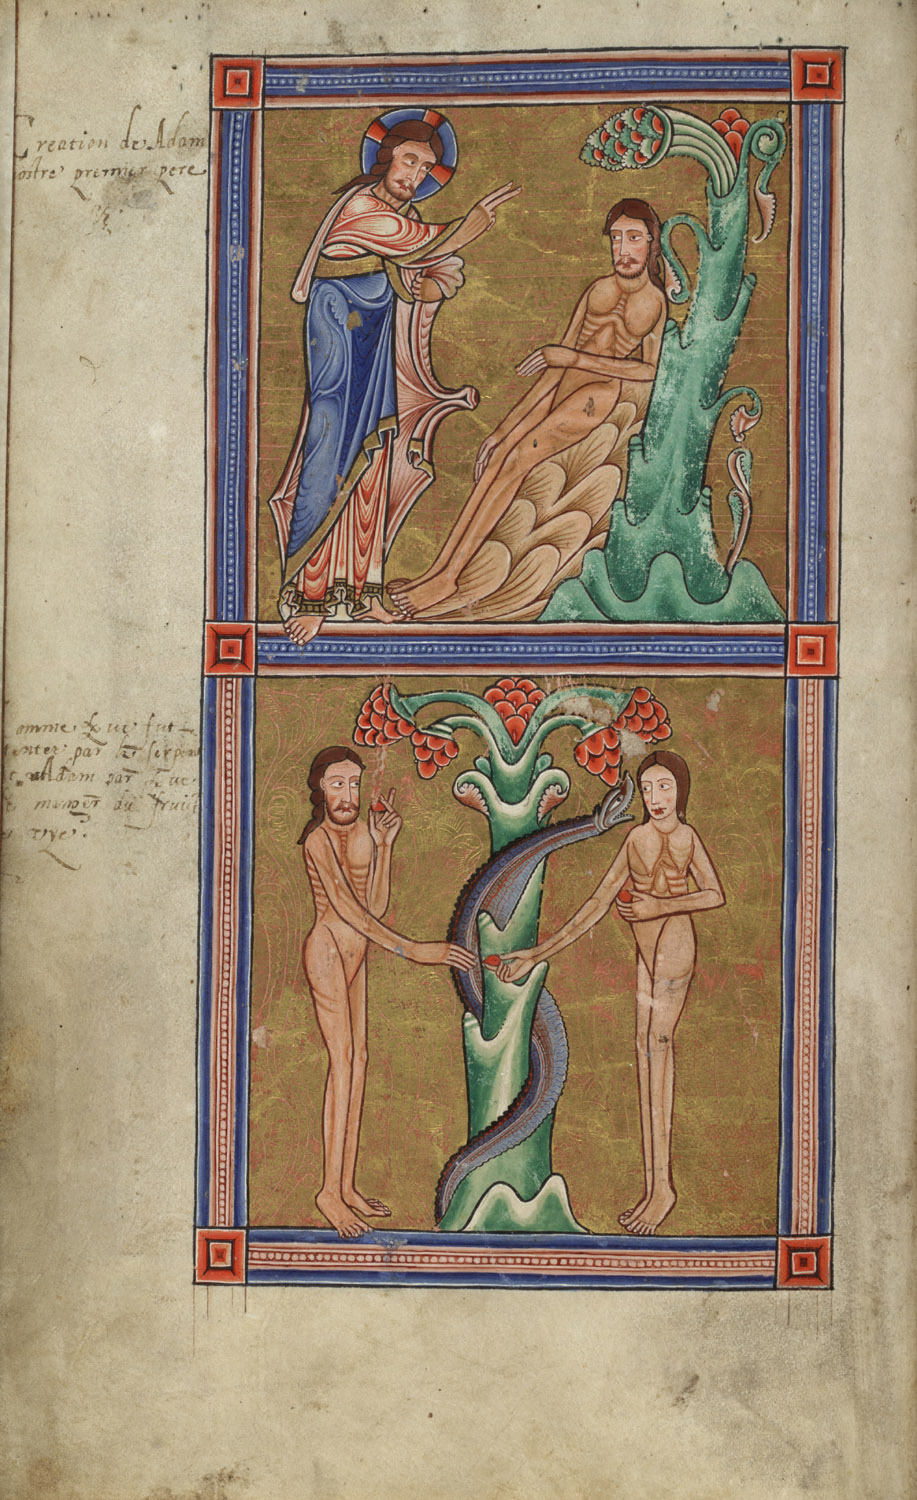 Creation de Adam
ostre premier pere
omme Eve fut
tenter par le serpen
Adam par Eve
du fruit